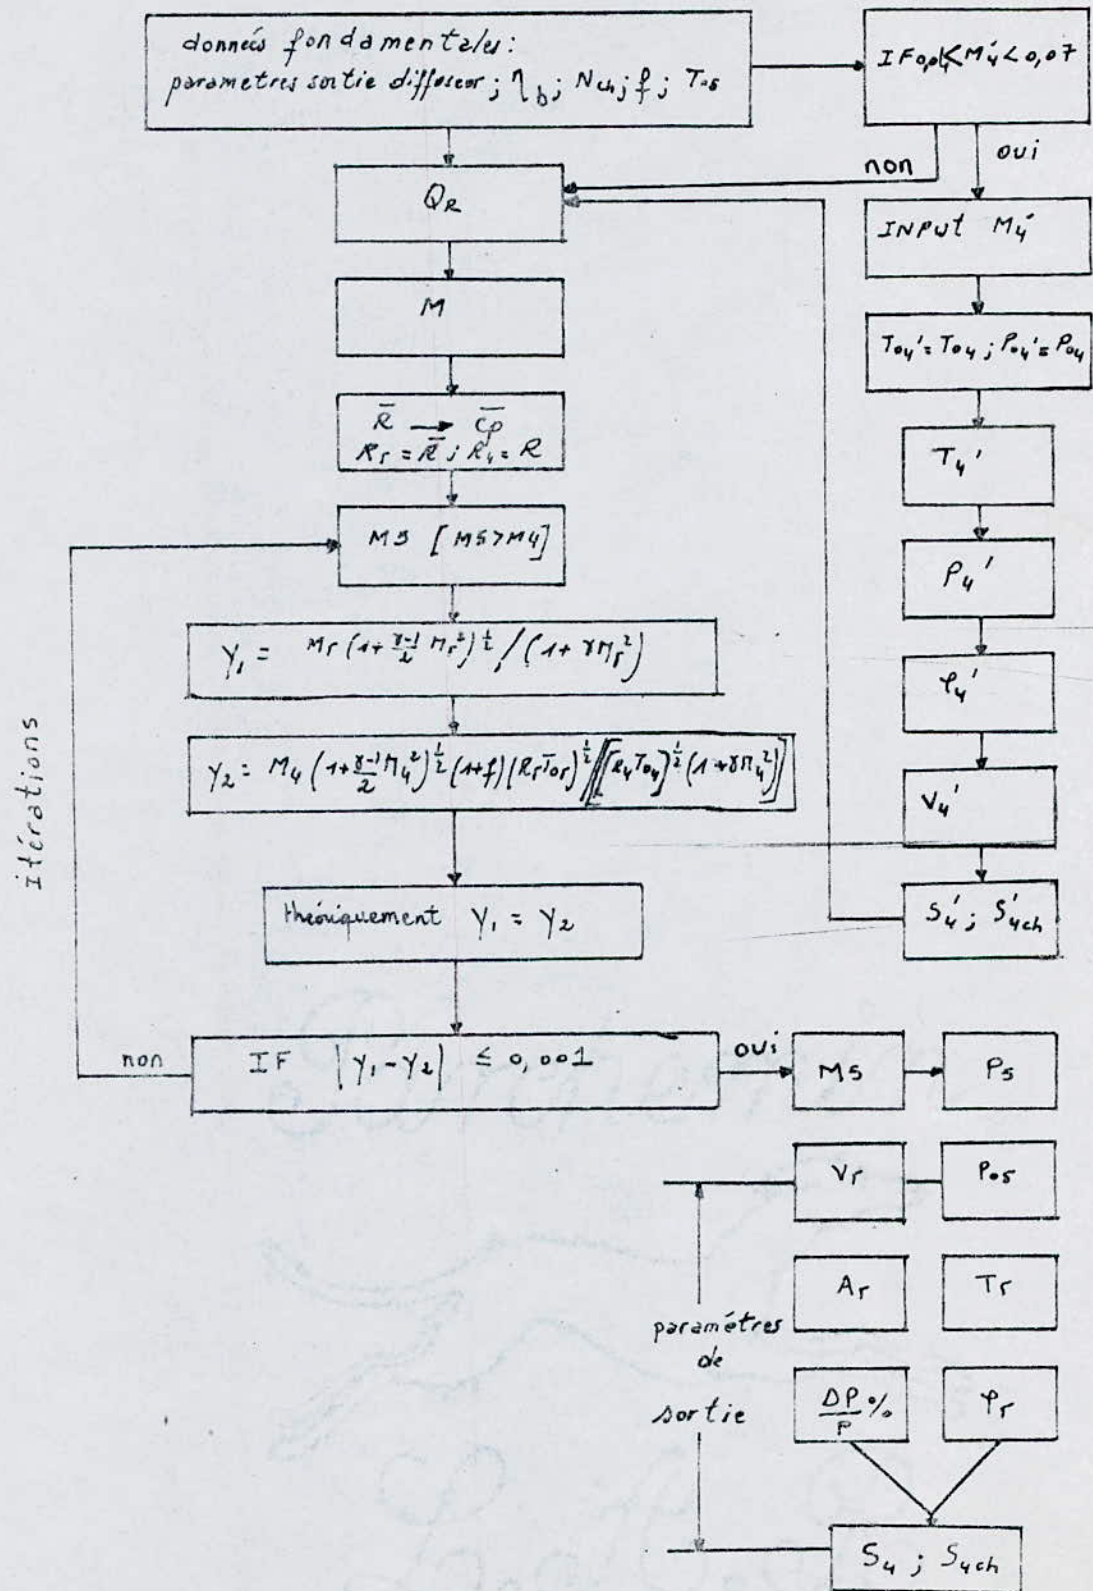 données fondamentales:
parametres sortie diffuseur; η_b; Nch; f; T₀₅
IF 0,04<M₄'<0,07
non
oui
Q_R
INPUT M₄'
M
T₀₄' = T₀₄ ; P₀₄' = P₀₄
R̅ → C̅p
R₅ = R̅ ; R₄ = R
T₄'
M5 [M5>M4]
P₄'
Y₁ = M₅ (1+ (γ-1)/2 M₅²)^½ / (1+ γM₅²)
φ₄'
Y₂ = M₄ (1+ (γ-1)/2 M₄²)^½ (1+f) (R₅T₀₅)^½ / [[R₄T₀₄]^½ (1+γM₄²)]
V₄'
itérations
théoriquement Y₁ = Y₂
S₄' ; S₄'ch
non
IF |Y₁-Y₂| ≤ 0,001
oui
M5
P5
V₅
P₀₅
A₅
T₅
paramétres
de
sortie
ΔP/P %
φ₅
S₄ ; S₄ch